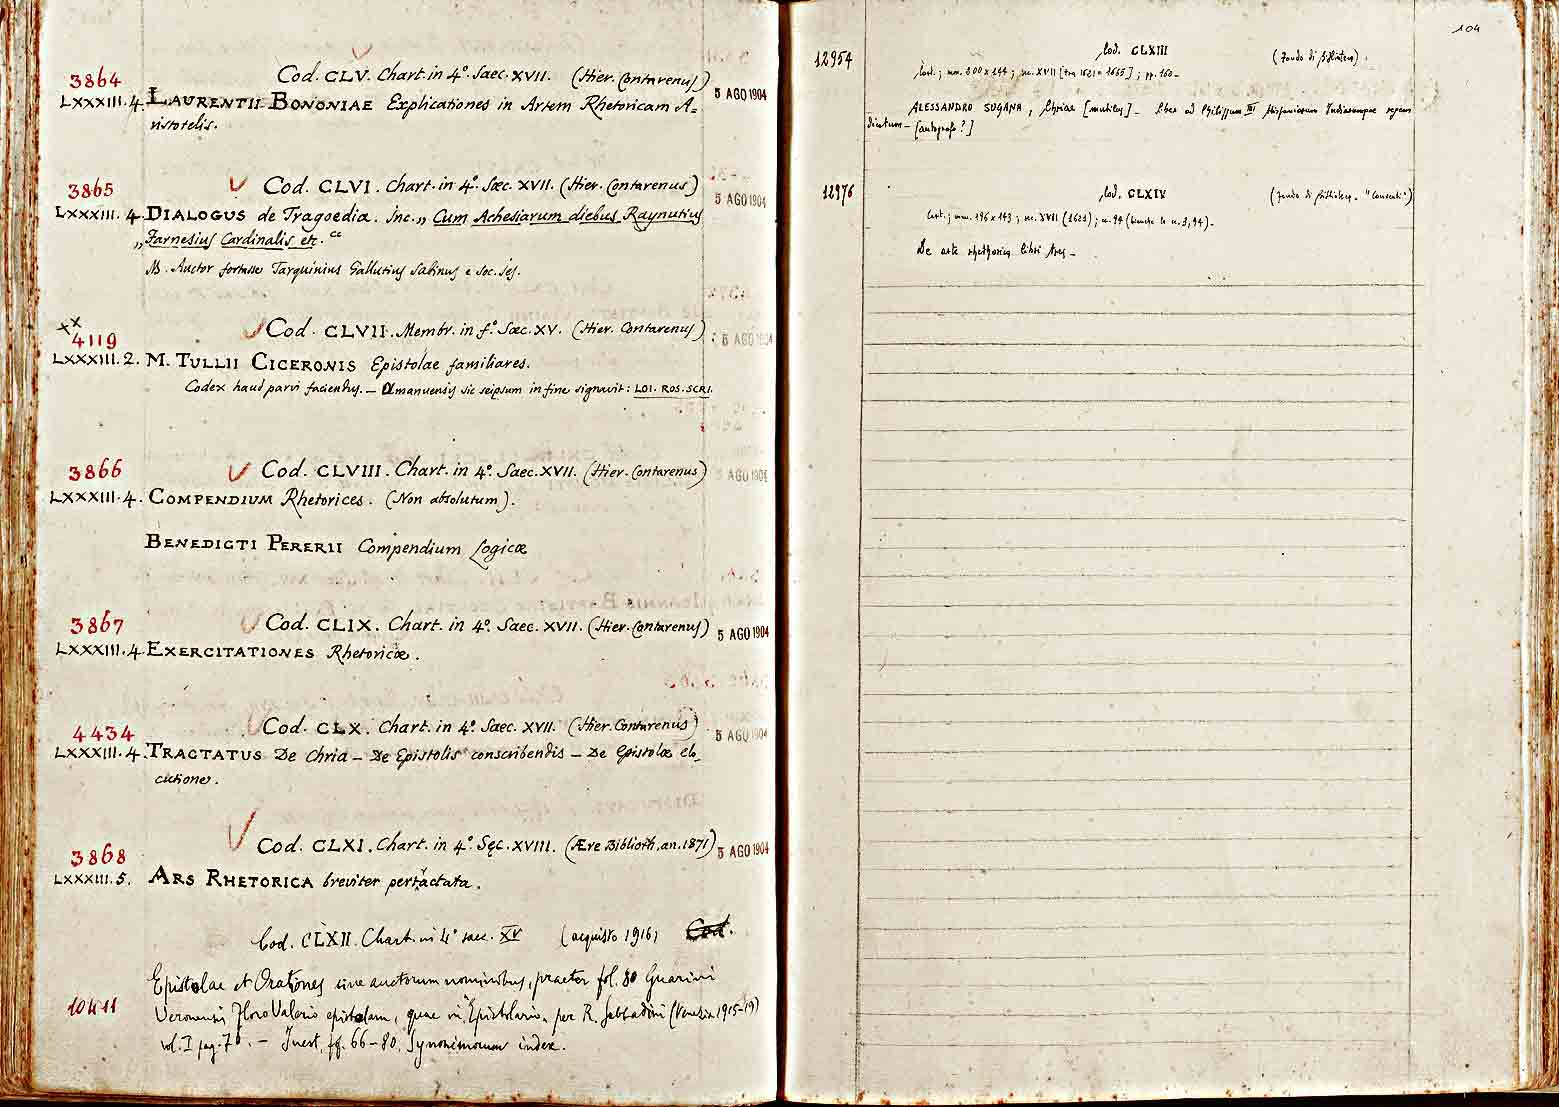 3864 Cod. CLV. Chart. in 4º. Saec. XVII. (Hier. Contarenus)
LXXXIII.4. LAURENTII BONONIAE Explicationes in Artem Rhetoricam A= 5 AGO 1904
ristotelis.
3865 Cod. CLVI. Chart. in 4º. Sæc. XVII. (Hier. Contarenus)
LXXXIII.4. DIALOGUS de Tragoedia. inc. „ Cum Achesiarum diebus Raynutius 5 AGO 1904
„ Farnesius Cardinalis etc. “
Auctor fortasse Tarquinius Gallutius Sabinus e Soc. Jes.
xx
4119 Cod. CLVII. Membr. in fº. Sæc. XV. (Hier. Contarenus) 5 AGO 1904
LXXXIII.2. M. TULLII CICERONIS Epistolae familiares.
Codex haud parvi faciendus. — Amanuensis sic seipsum in fine signavit: LOI. ROS. SCRI.
3866 Cod. CLVIII. Chart. in 4º. Saec. XVII. (Hier. Contarenus) 5 AGO 1904
LXXXIII.4. COMPENDIUM Rhetorices. (Non absolutum).
BENEDICTI PERERII Compendium Logicæ
3867 Cod. CLIX. Chart. in 4º. Saec. XVII. (Hier. Contarenus) 5 AGO 1904
LXXXIII.4. EXERCITATIONES Rhetoricæ.
4434 Cod. CLX. Chart. in 4º. Saec. XVII. (Hier. Contarenus) 5 AGO 1904
LXXXIII.4. TRACTATUS De Chria — De Epistolis conscribendis — De Epistolæ elo_
cutione.
3868 Cod. CLXI. Chart. in 4º. Sęc. XVIII. (Ære Biblioth. an. 1871) 5 AGO 1904
LXXXIII.5. ARS RHETORICA breviter pertractata.
Cod. CLXII. Chart. in 4º saec. XV (acquisto 1916) Cod.
Epistolae et Orationes sine auctorum nominibus, praeter fol. 80 Guarini
10411 Veronensis Floro Valerio epistolam, quae in "Epistolario" per R. Sabbadini (Venezia 1915-19)
vol. I pag. — Inest, ff. 66-80, Synonimorum index.
104
12954 Cod. CLXIII (Fondo di Biblioteca).
Cart.; mm. 200 x 144; sec. XVII [tra 1621 e 1665]; pp. 160.
ALESSANDRO SUGANA, Chriae [mutilus] — Liber ad Philippum III Hispaniarum Indiarumque regem
dicatum — [autografo?]
12976 Cod. CLXIV (Fondo di Biblioteca. "Conventi")
Cart.; mm. 196 x 143; sec. XVII (1621); cc. 94 (bianche le cc. 1, 94).
De arte rhethorica libri tres —